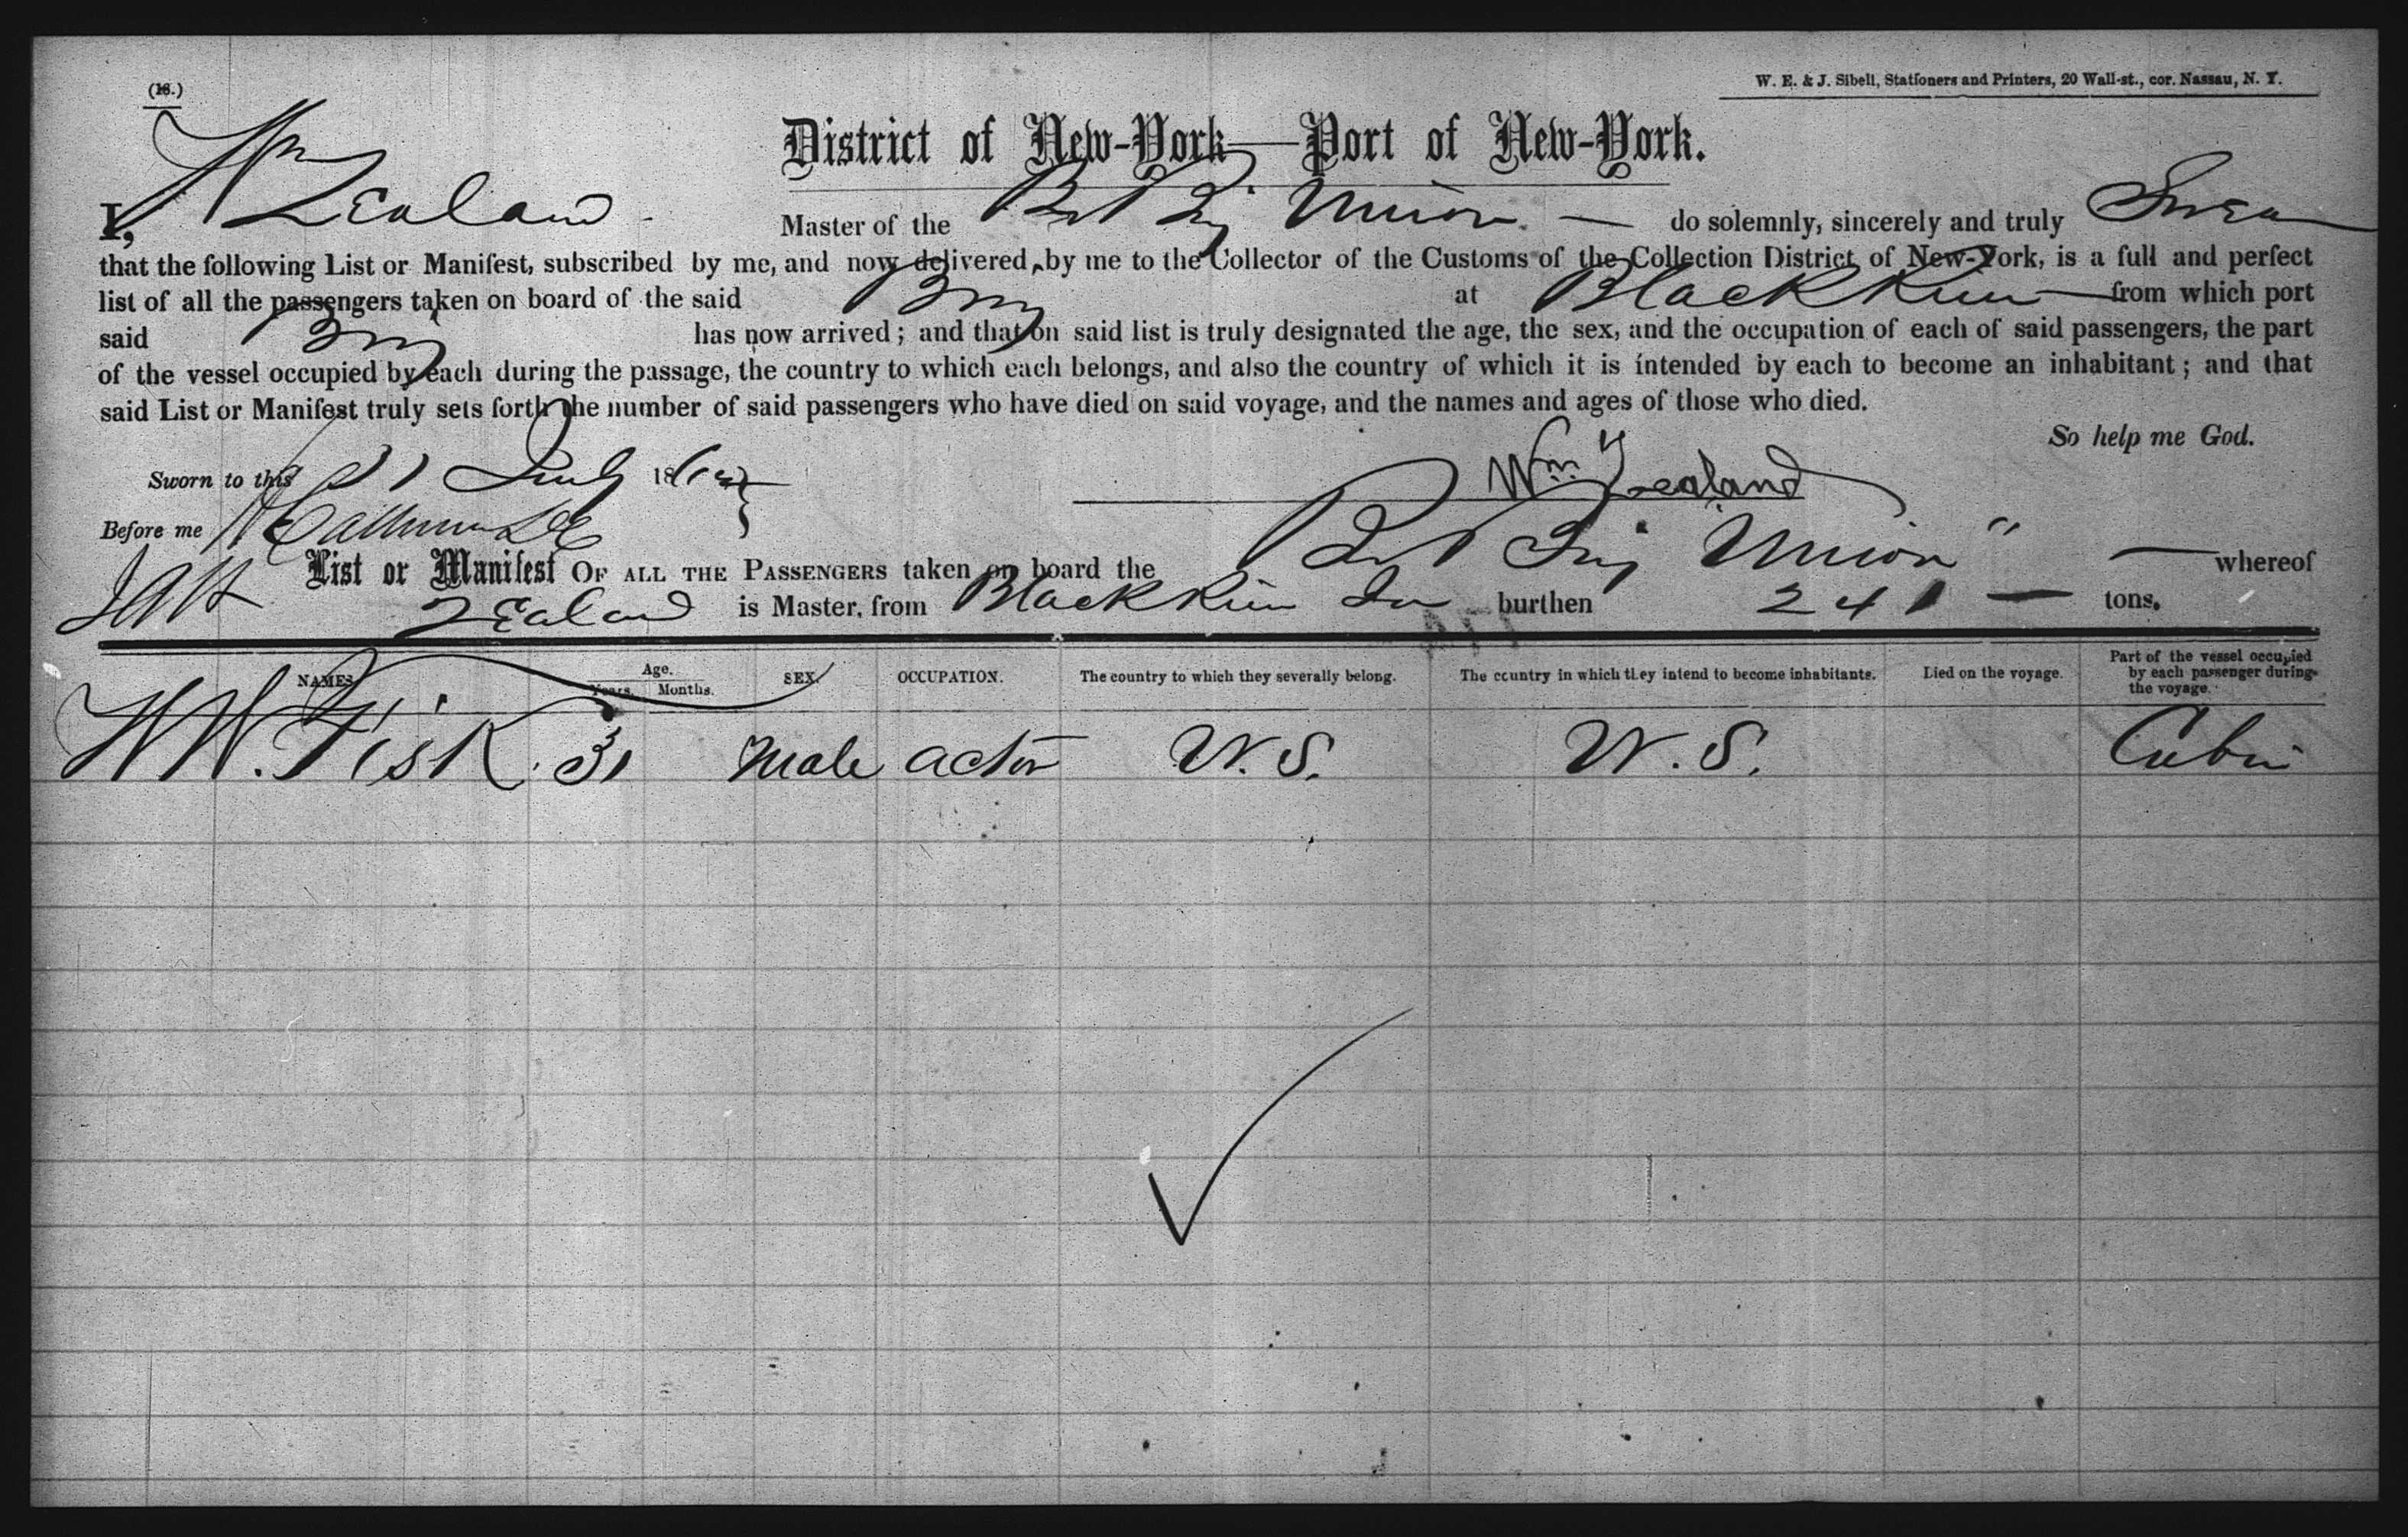 (18.)
W. E. & J. Sibell, Stationers and Printers, 20 Wall-st., cor. Nassau, N. Y.
District of New-York—Port of New-York.
I, Wm Zealand Master of the Brt Brig Union — do solemnly, sincerely and truly Swear
that the following List or Manifest, subscribed by me, and now delivered by me to the Collector of the Customs of the Collection District of New-York, is a full and perfect
list of all the passengers taken on board of the said Brig at Black River from which port
said Brig has now arrived; and that on said list is truly designated the age, the sex, and the occupation of each of said passengers, the part
of the vessel occupied by each during the passage, the country to which each belongs, and also the country of which it is intended by each to become an inhabitant; and that
said List or Manifest truly sets forth the number of said passengers who have died on said voyage, and the names and ages of those who died.
So help me God.
Sworn to this July 18 Wm Zealand
Before me
List or Manifest OF ALL THE PASSENGERS taken on board the Brt Brig Union" — whereof
Zealand is Master, from Black River Ja burthen 241 — tons.
NAMES Age. Years. Months. SEX. OCCUPATION. The country to which they severally belong. The country in which they intend to become inhabitants. Died on the voyage. Part of the vessel occupied by each passenger during the voyage.
W W. Fisk 31 Male actor U. S. U. S. Cabin